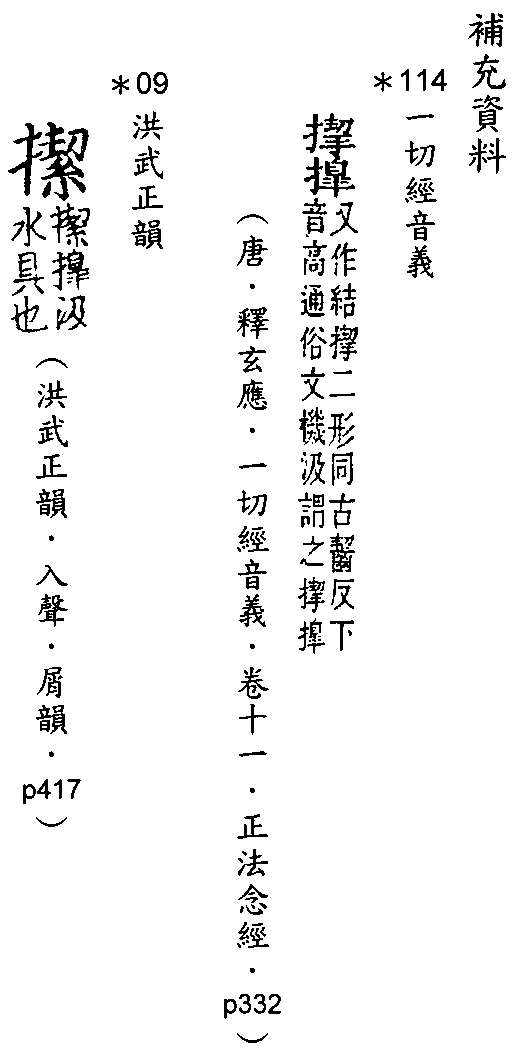 補充資料
*114 一切經音義
又作結二形同古齧反下
音高通俗文機汲謂之
(唐．釋玄應．一切經音義．卷十一．正法念經．p332)
*09 洪武正韻
汲
水具也(洪武正韻．入聲．屑韻．p417)